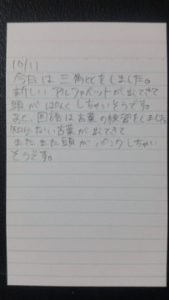 10/11
今日は三角比をしました。
新しいアルファベットが出てきて
頭がばくはつしちゃいそうです。
あと、国語は言葉の練習をしました。
知らない言葉が出てきて
またまた頭がパンクしちゃい
そうです。